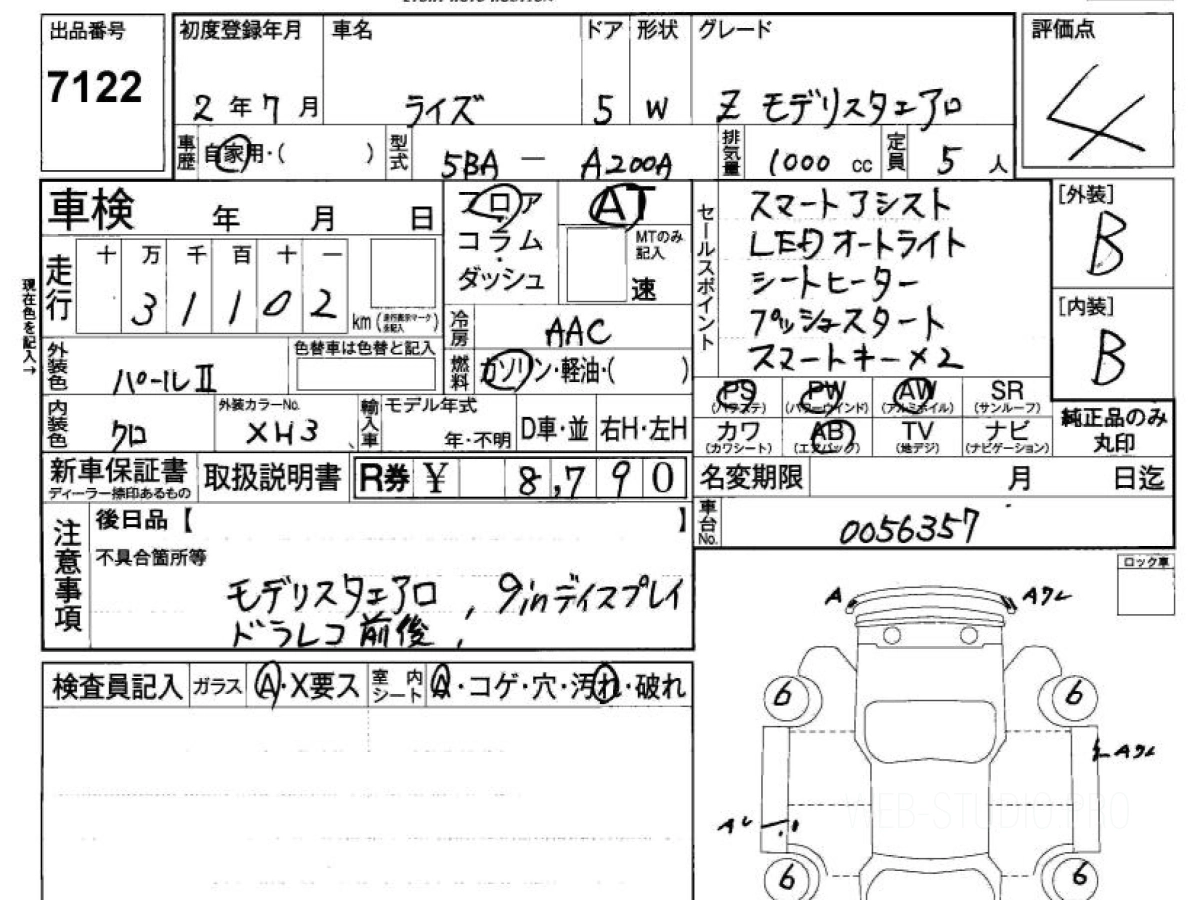 出品番号
7122
初度登録年月
2年7月
車名
ライズ
ドア
5
形状
W
グレード
Z モデリスタエアロ
評価点
4
車歴
自家用・( )
型式
5BA - A200A
排気量
1000 cc
定員
5 人
車検 年 月 日
走行
十 万 千 百 十 一
3 1 1 0 2
km (走行表示マーク要記入)
現在色を記入→
フロア
コラム
ダッシュ
AT
MTのみ記入
速
冷房
AAC
燃料
ガソリン・軽油・( )
セールスポイント
スマートアシスト
LEDオートライト
シートヒーター
プッシュスタート
スマートキー×2
[外装]
B
[内装]
B
外装色
パールII
色替車は色替と記入
内装色
クロ
外装カラーNo.
XH3
輸入車
モデル年式
年・不明
D車・並
右H・左H
PS
(パワステ)
PW
(パワーウインド)
AW
(アルミホイル)
SR
(サンルーフ)
カワ
(カワシート)
AB
(エアバッグ)
TV
(地デジ)
ナビ
(ナビゲーション)
純正品のみ
丸印
新車保証書
ディーラー捺印あるもの
取扱説明書
R券 ¥ 8,790
名変期限 月 日迄
車台No.
0056357
注意事項
後日品【 】
不具合箇所等
モデリスタエアロ , 9inディスプレイ
ドラレコ前後,
ロック車
A
Aワレ
6
6
Aワレ
6
6
検査員記入
ガラス
A・X要ス
室内シート
A・コゲ・穴・汚れ・破れ
WEB-STUDIO.PRO